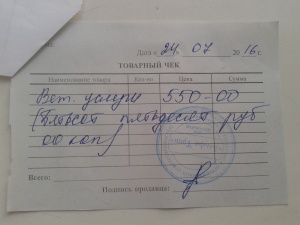 Дата « 24 » 07 2016 г.
ТОВАРНЫЙ ЧЕК
Наименование товара Кол-во Цена Сумма
Вет. услуги 550-00
(Пятьсот пятьдесят руб
00 коп)
Всего:
Подпись продавца: